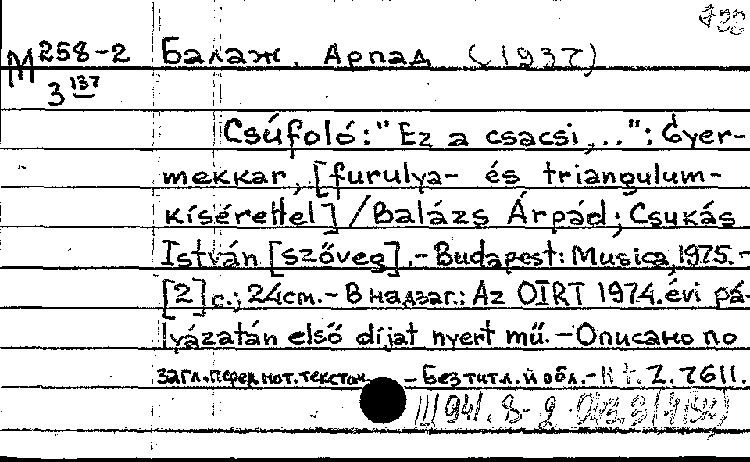 М 258-2 Балаж, Арпад (1937)
3 137
Csúfoló: "Ez a csacsi,..": Gyer-
mekkar, [furulya- és triangulum-
kísérettel] / Balázs Árpád; Csukás
István [szöveg]. - Budapest: Musica, 1975. -
[2] с.; 24см. - В надзаг.: Az OIRT 1974. évi pá-
lyázatán első díjat nyert mű. - Описано по
загл. перед нот. текстом - Без титл. и обл. - Z. 7611.